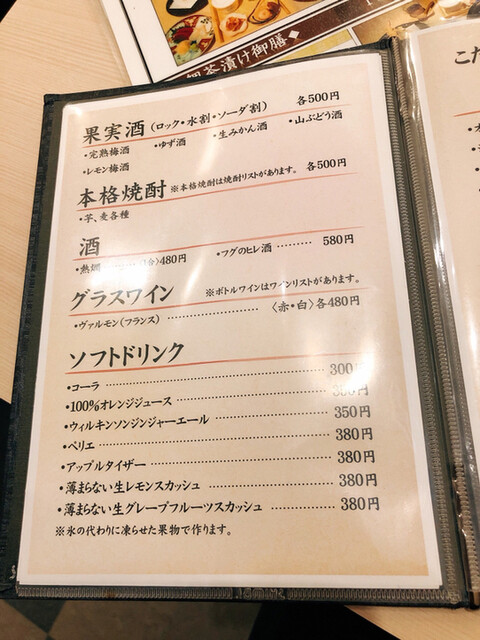 茶漬け御膳◆
果実酒（ロック・水割・ソーダ割） 各500円
・完熟梅酒 ・ゆず酒 ・生みかん酒 ・山ぶどう酒
・レモン梅酒
本格焼酎 ※本格焼酎は焼酎リストがあります。 各500円
・芋、麦各種
酒
・熱燗 480円 ・フグのヒレ酒 ……… 580円
グラスワイン ※ボトルワインはワインリストがあります。
・ヴァルモン（フランス） ……… 〈赤・白〉各480円
ソフトドリンク
・コーラ ……… 300円
・100%オレンジジュース ……… 350円
・ウィルキンソンジンジャーエール ……… 350円
・ペリエ ……… 380円
・アップルタイザー ……… 380円
・薄まらない生レモンスカッシュ ……… 380円
・薄まらない生グレープフルーツスカッシュ ……… 380円
※氷の代わりに凍らせた果物で作ります。